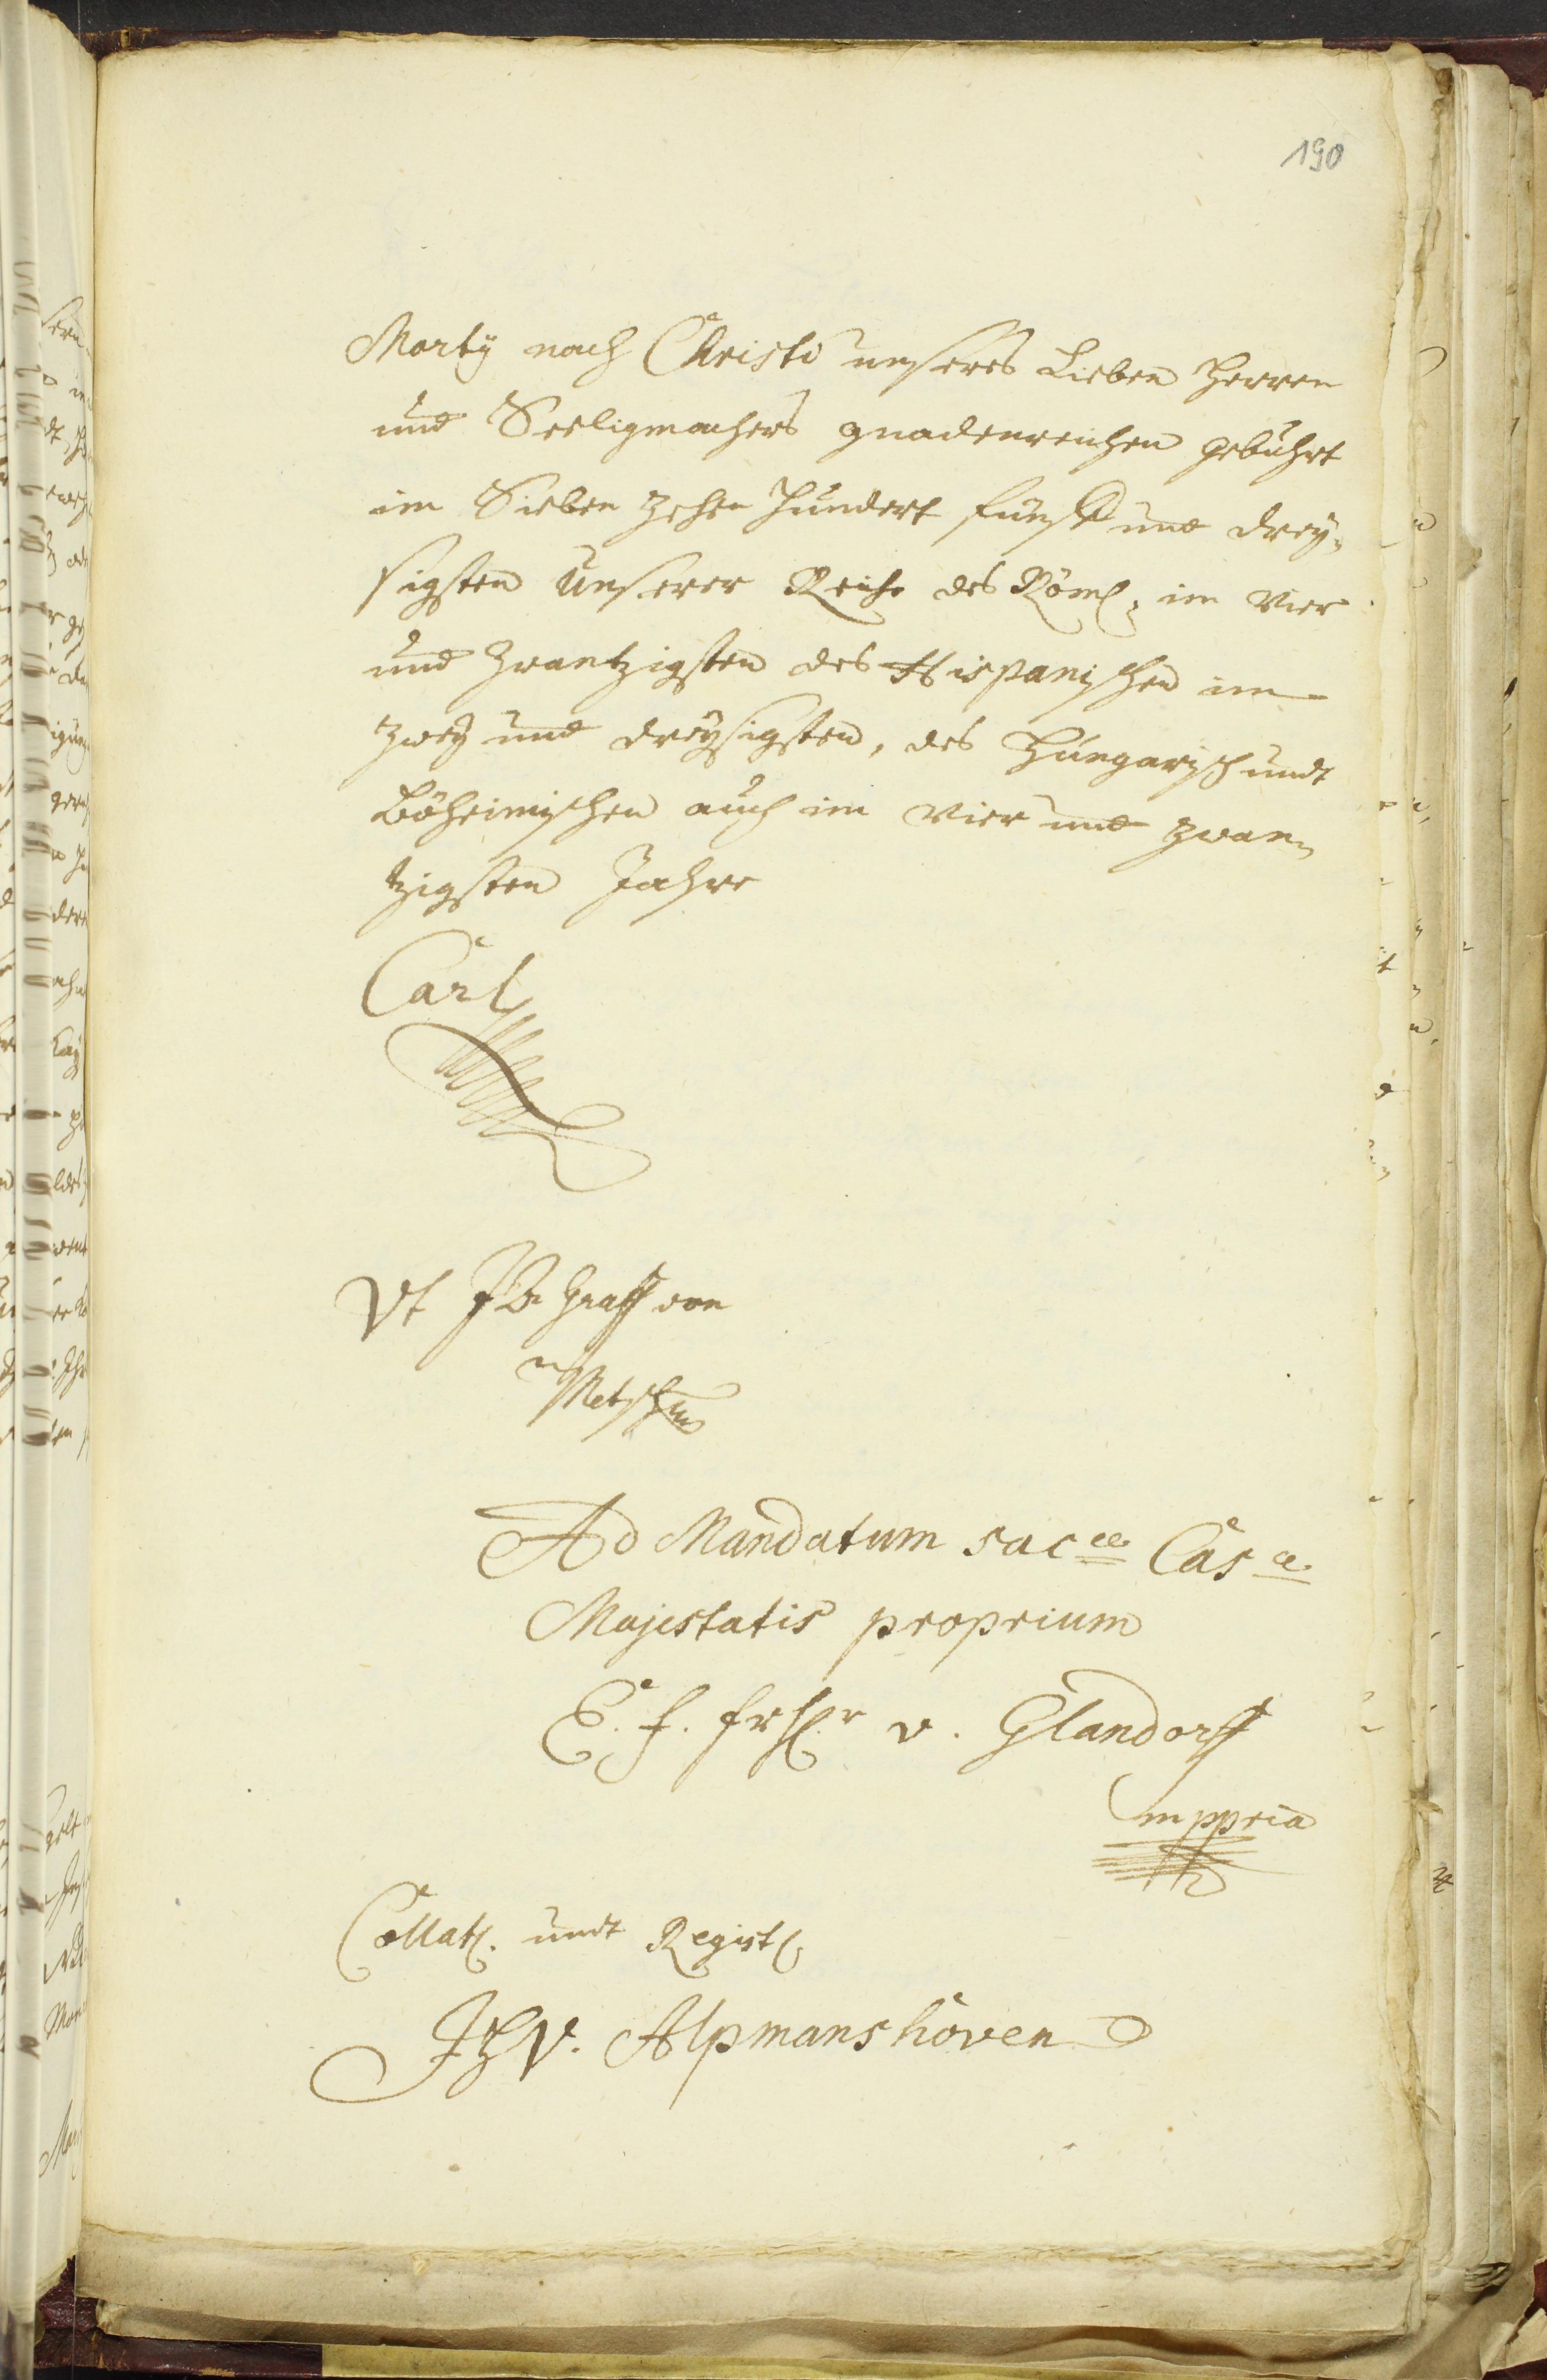 190
Martÿ nach Christi unseres Lieben Herren
und Seeligmachers gnadenreichen gebührt
im Sieben zehen hundert fünff und drey-
sigsten Unserer Reiche des Röml: im vier
und zwantzigsten des Hispanischen im
zweÿ und dreÿsigsten, des Hungarisch undt
Böheimischen auch im vier und zwan-
tzigsten Jahre
Carl
Vt J A Graff von
Metsch
Ad Mandatum sac ae Cäs ae
Majestatis proprium
E. f. frhl.r v. Glandorff
mppria
Collatl. undt Registl.
v. Alpmanshoven